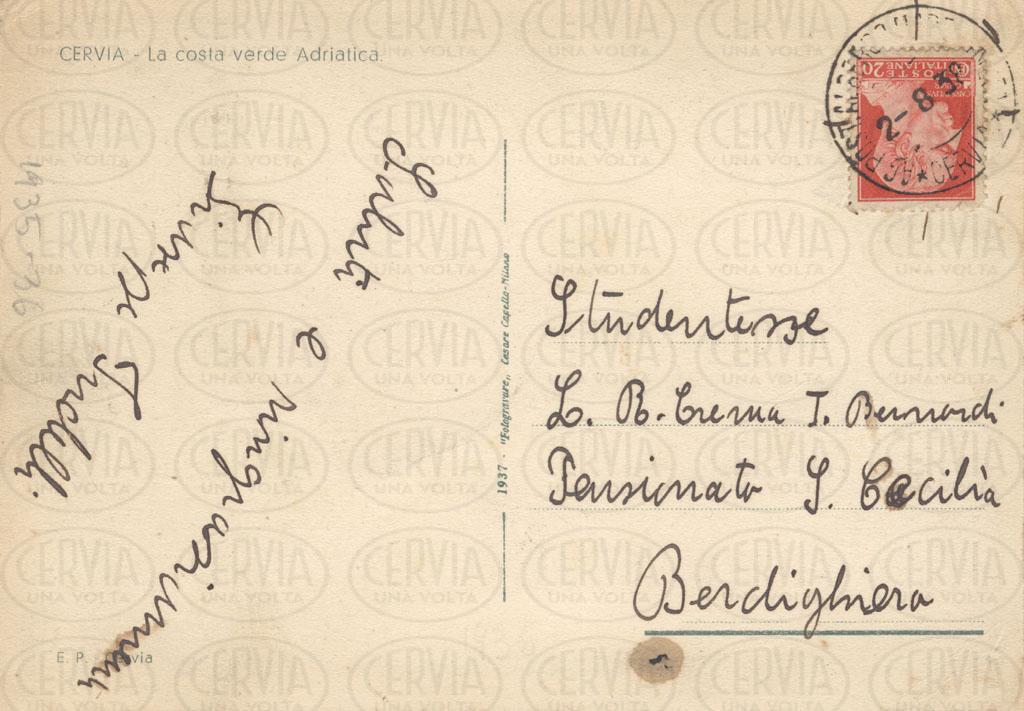 CERVIA - La costa verde Adriatica.
Saluti
e ringraziamenti
1935-36
1937 - "Fotogravure,, Cesare Capello-Milano
E. P. Cervia
POSTE ITALIANE
2-8-38
CERVIA
Studentesse
L. B. Crema I. Bernardi
Pensionato S. Cecilià
Berdighiera
CERVIA
UNA VOLTA